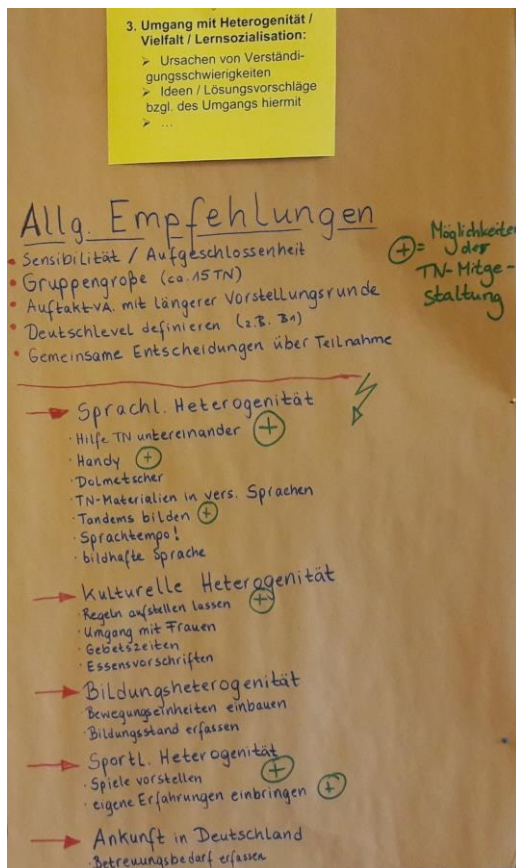 3. Umgang mit Heterogenität /
Vielfalt / Lernsozialisation:
➢ Ursachen von Verständi-
gungsschwierigkeiten
➢ Ideen / Lösungsvorschläge
bzgl. des Umgangs hiermit
➢ ...
Allg. Empfehlungen
• Sensibilität / Aufgeschlossenheit
• Gruppengroße (ca. 15 TN)
• Auftakt-VA. mit längerer Vorstellungsrunde
• Deutschlevel definieren (z.B. B1)
• Gemeinsame Entscheidungen über Teilnahme
⊕ = Möglichkeiten
der
TN-Mitge-
staltung
→ Sprachl. Heterogenität
· Hilfe TN untereinander ⊕
· Handy ⊕
· Dolmetscher
· TN-Materialien in vers. Sprachen
· Tandems bilden ⊕
· Sprachtempo!
· bildhafte Sprache
→ Kulturelle Heterogenität
· Regeln aufstellen lassen ⊕
· Umgang mit Frauen
· Gebetszeiten
· Essensvorschriften
→ Bildungsheterogenität
· Bewegungseinheiten einbauen
· Bildungsstand erfassen
→ Sportl. Heterogenität
· Spiele vorstellen ⊕
· eigene Erfahrungen einbringen ⊕
→ Ankunft in Deutschland
· Betreuungsbedarf erfassen